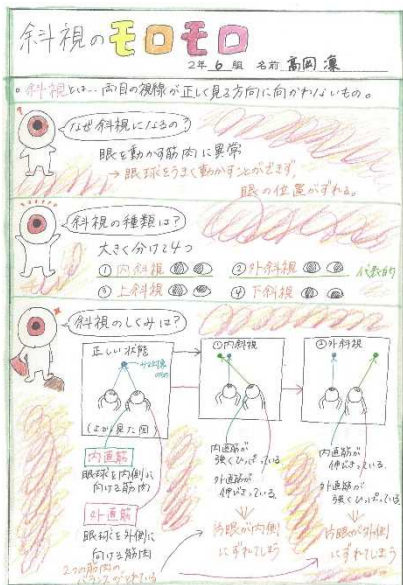 斜視のモロモロ
2年 6組 名前 高岡 凜
。斜視とは‥両目の視線が正しく見る方向に向かれないもの。
なぜ斜視になるの?
眼を動かす筋肉に異常
→眼球をうまく動かすことができず、
眼の位置がずれる。
斜視の種類は?
大きく分けて4つ
① 内斜視
② 外斜視
代表的
③ 上斜視
④ 下斜視
斜視のしくみは?
正しい状態
みる対象
(上から見た図)
①内斜視
②外斜視
内直筋
眼球を内側に
向ける筋肉
外直筋
眼球を外側に
向ける筋肉
2つの筋肉の
バランスがとれている
内直筋が
強くひっぱっている
外直筋が
伸びきっている。
片眼が内側
にずれてしまう
内直筋が
伸びきっている
外直筋が
強くひっぱっている
片眼が外側
にずれてしまう